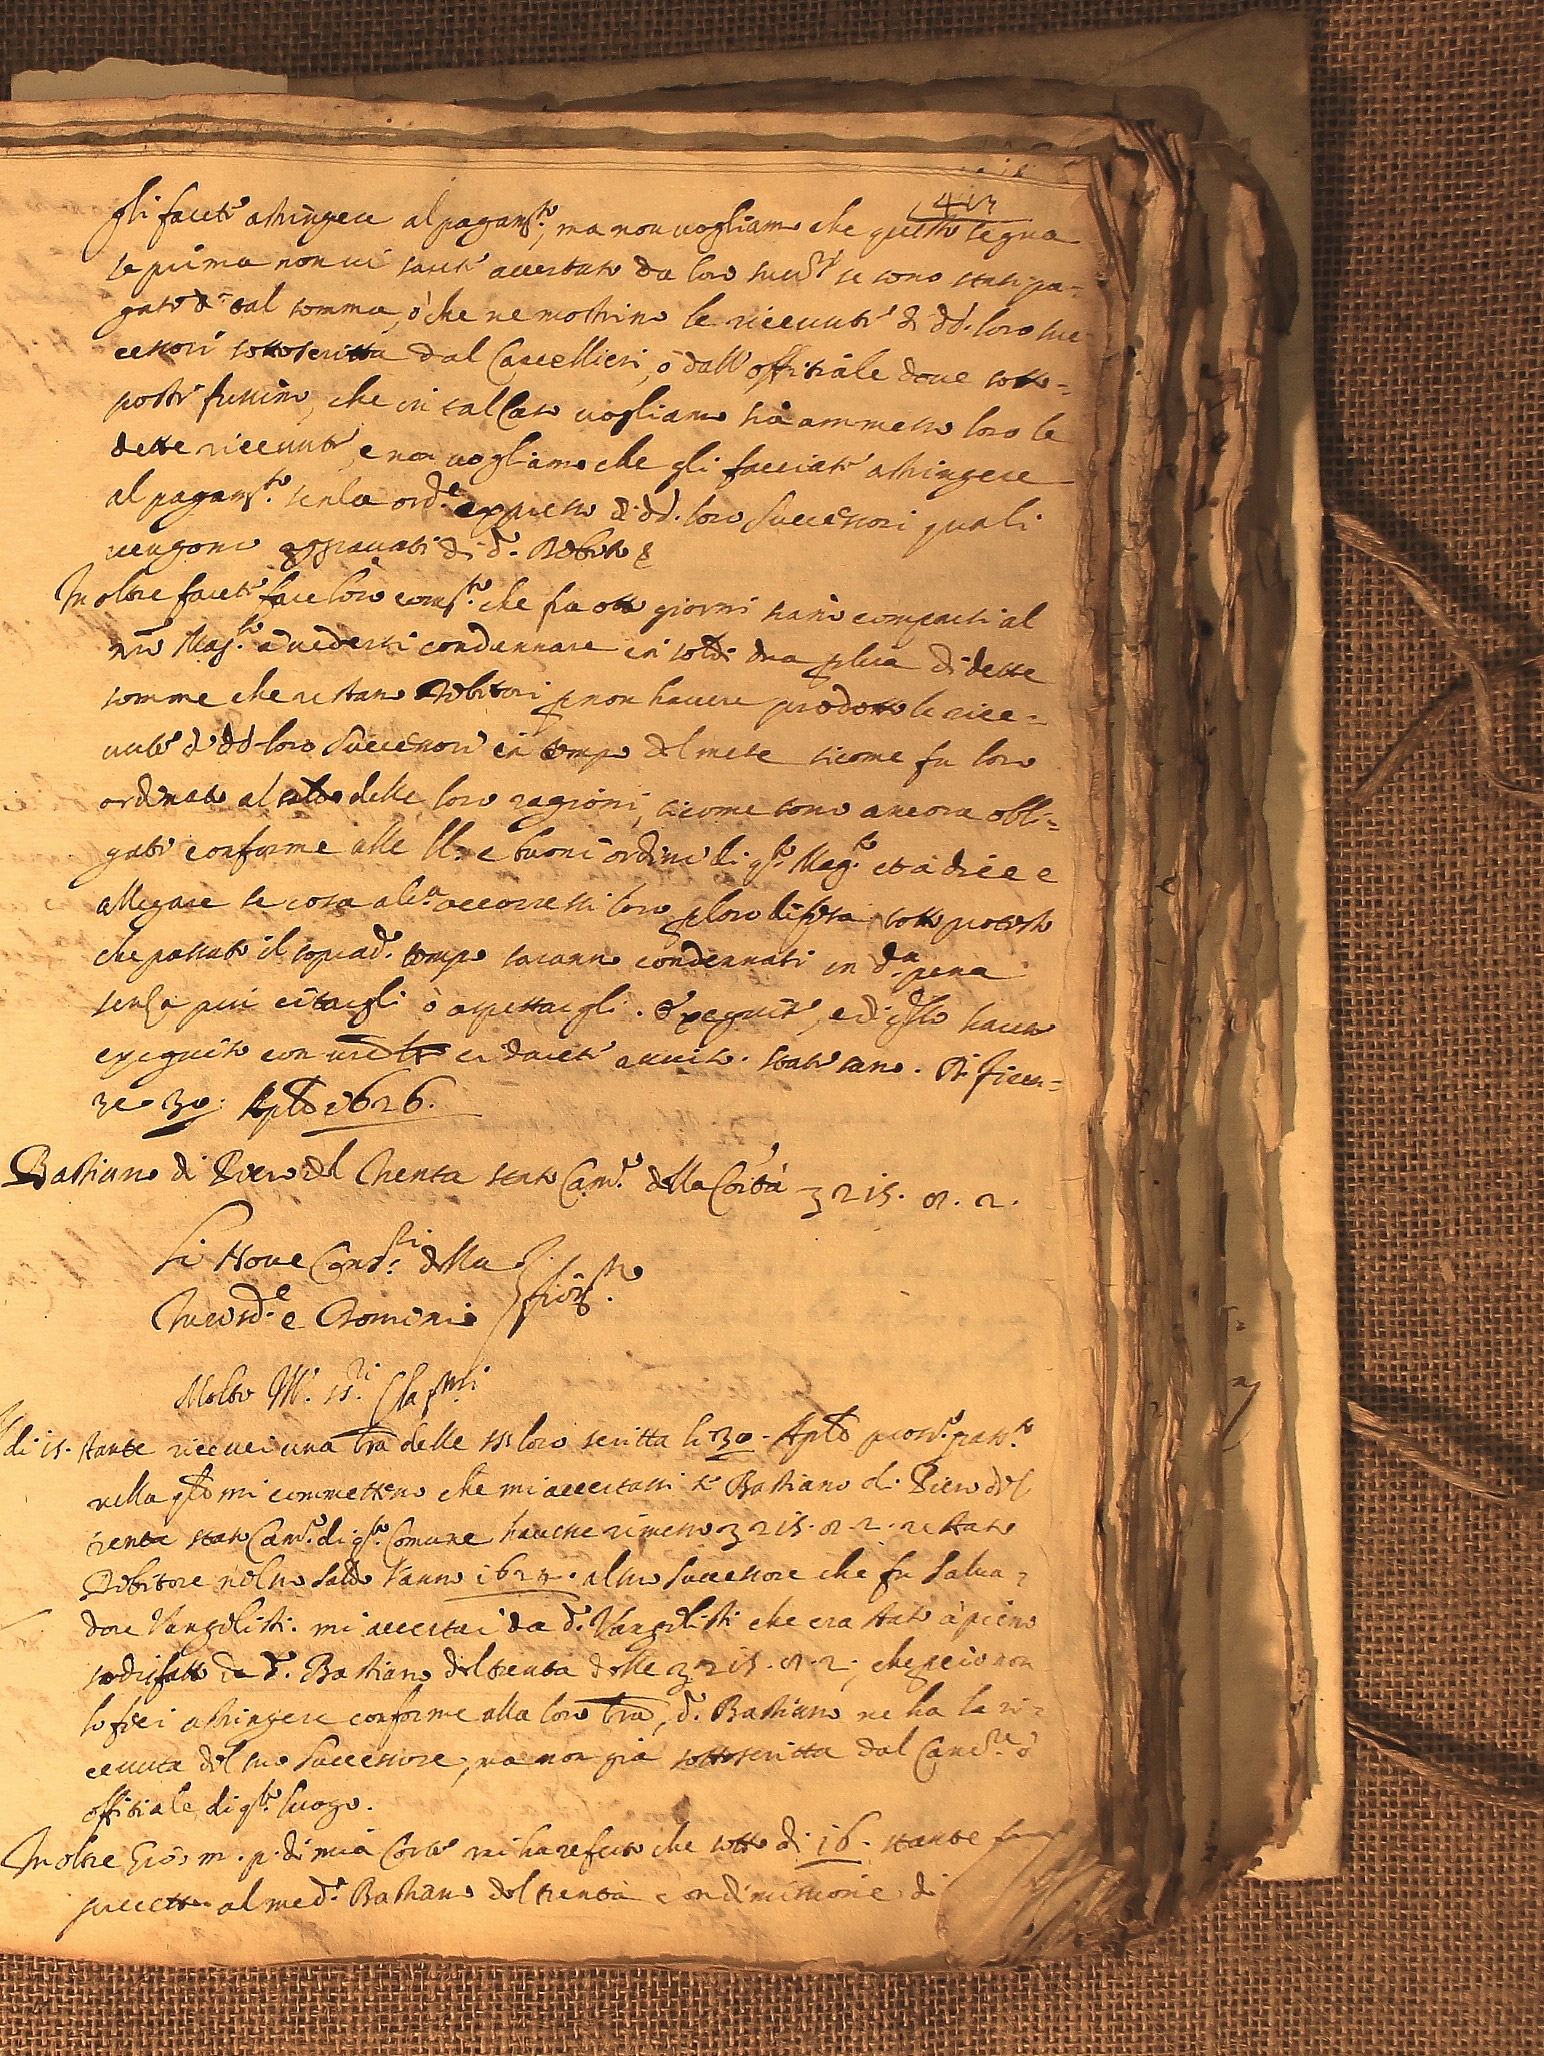 413
gli farete astringere al pagam.to, ma non vogliamo che questo segua
se prima non vi sarete accertato da loro succ.ri se sono stati pa-
gati di tal somma, ò che ne mostrino le ricevute di dd. loro suc-
cessori sottoscritta dal Cancellieri, ò dall' offitiale dove sotto-
posti fussino, che in tal Caso vogliamo sia ammesso loro le
dette ricevute, e non vogliamo che gli facciate astringere
al pagam.to senza ord.e expresso di dd. loro Successori quali
venghino aggravati di d. debito &
Inoltre farete fare loro com.to che fra otto giorni siano comparsi al
nro Mag.to a vedersi condennare in soldi dua per lira di dette
somme che restano debitori per non havere prodotto le rice-
vute di dd. loro Successori in tempo del mese sicome fu loro
ordinato al saldo delle loro ragioni, sicome sono ancora obli-
gati conforme alle ll. e buoni ordini di q.to Mag.to et à dire e
allegare se cosa alc.a occorressi loro per loro difesa, sotto protesto
che passato il soprad. tempo saranno condennati in d.a pena
senza più citargli ò aspettargli. Exeguite, e di q.sto havere
exeguito con vra lra ci darete avviso. state sano. Di Firen-
ze 30. Aple 1626.
Bastiano di Piero del Trenta stato Cam.o della Cortà 215. 01. 2.
Li Nove Cons.ri della
Iurisd.e e Dominio
fior.no
Molto Ill. ss.ri Cla.mi
di 15. stante ricevei una lra delle ss. loro scritta li 30. Aple pross.o pass.to
nella qle mi commettono che mi accertassi se Bastiano di Piero del
trenta stato Cam.o di q.to Comune havere rimesso 215. 01. 2. restato
Debitore nel suo saldo l'anno 1624. al suo successore che fu Salva-
dore Vangelisti. mi accertai da d. Vangelisti che era stato à pieno
sodisfatto da d. Bastiano del trenta delle 215. 01. 2. che per ciò non
lo feci astringere conforme alla loro lra, d. Bastiano ne ha la ri-
cevuta del suo Successore, ma non già sottoscritta dal Canc.re ò
offitiale di q.to luogo.
Inoltre Gio: m. p. di mia Corte mi ha referto che sotto di 16. stante
precetto al med.o Bastiano del trenta con dimissione di